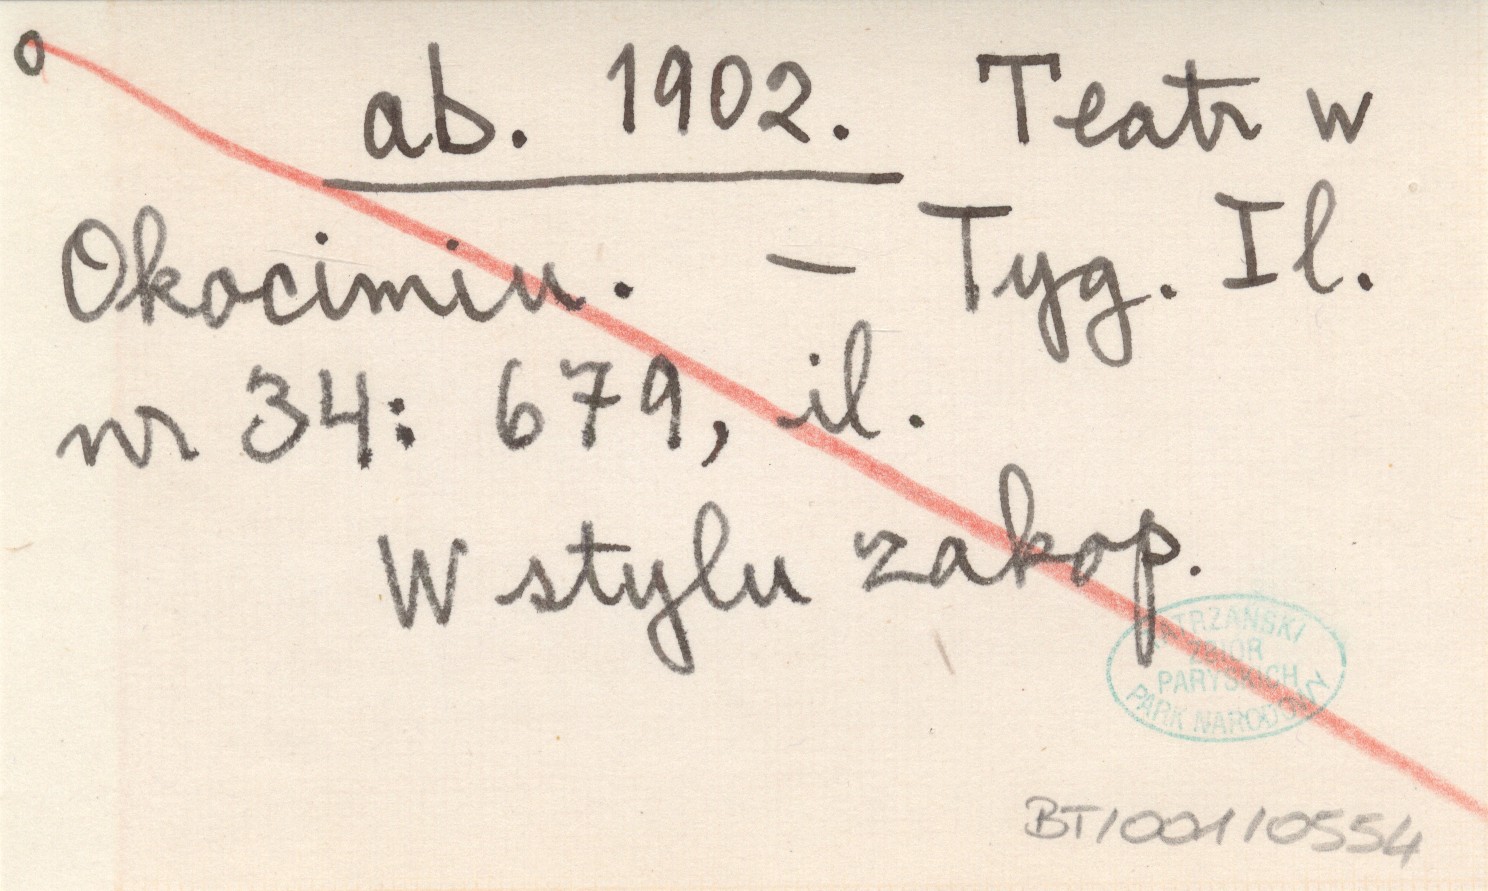 o
ab. 1902. Teatr w
Okocimiu. - Tyg. Il.
nr 34: 679, il.
W stylu zakop.
TATRZAŃSKI
ZBIÓR
PARYSKICH
PARK NARODOWY
BT/001/10554